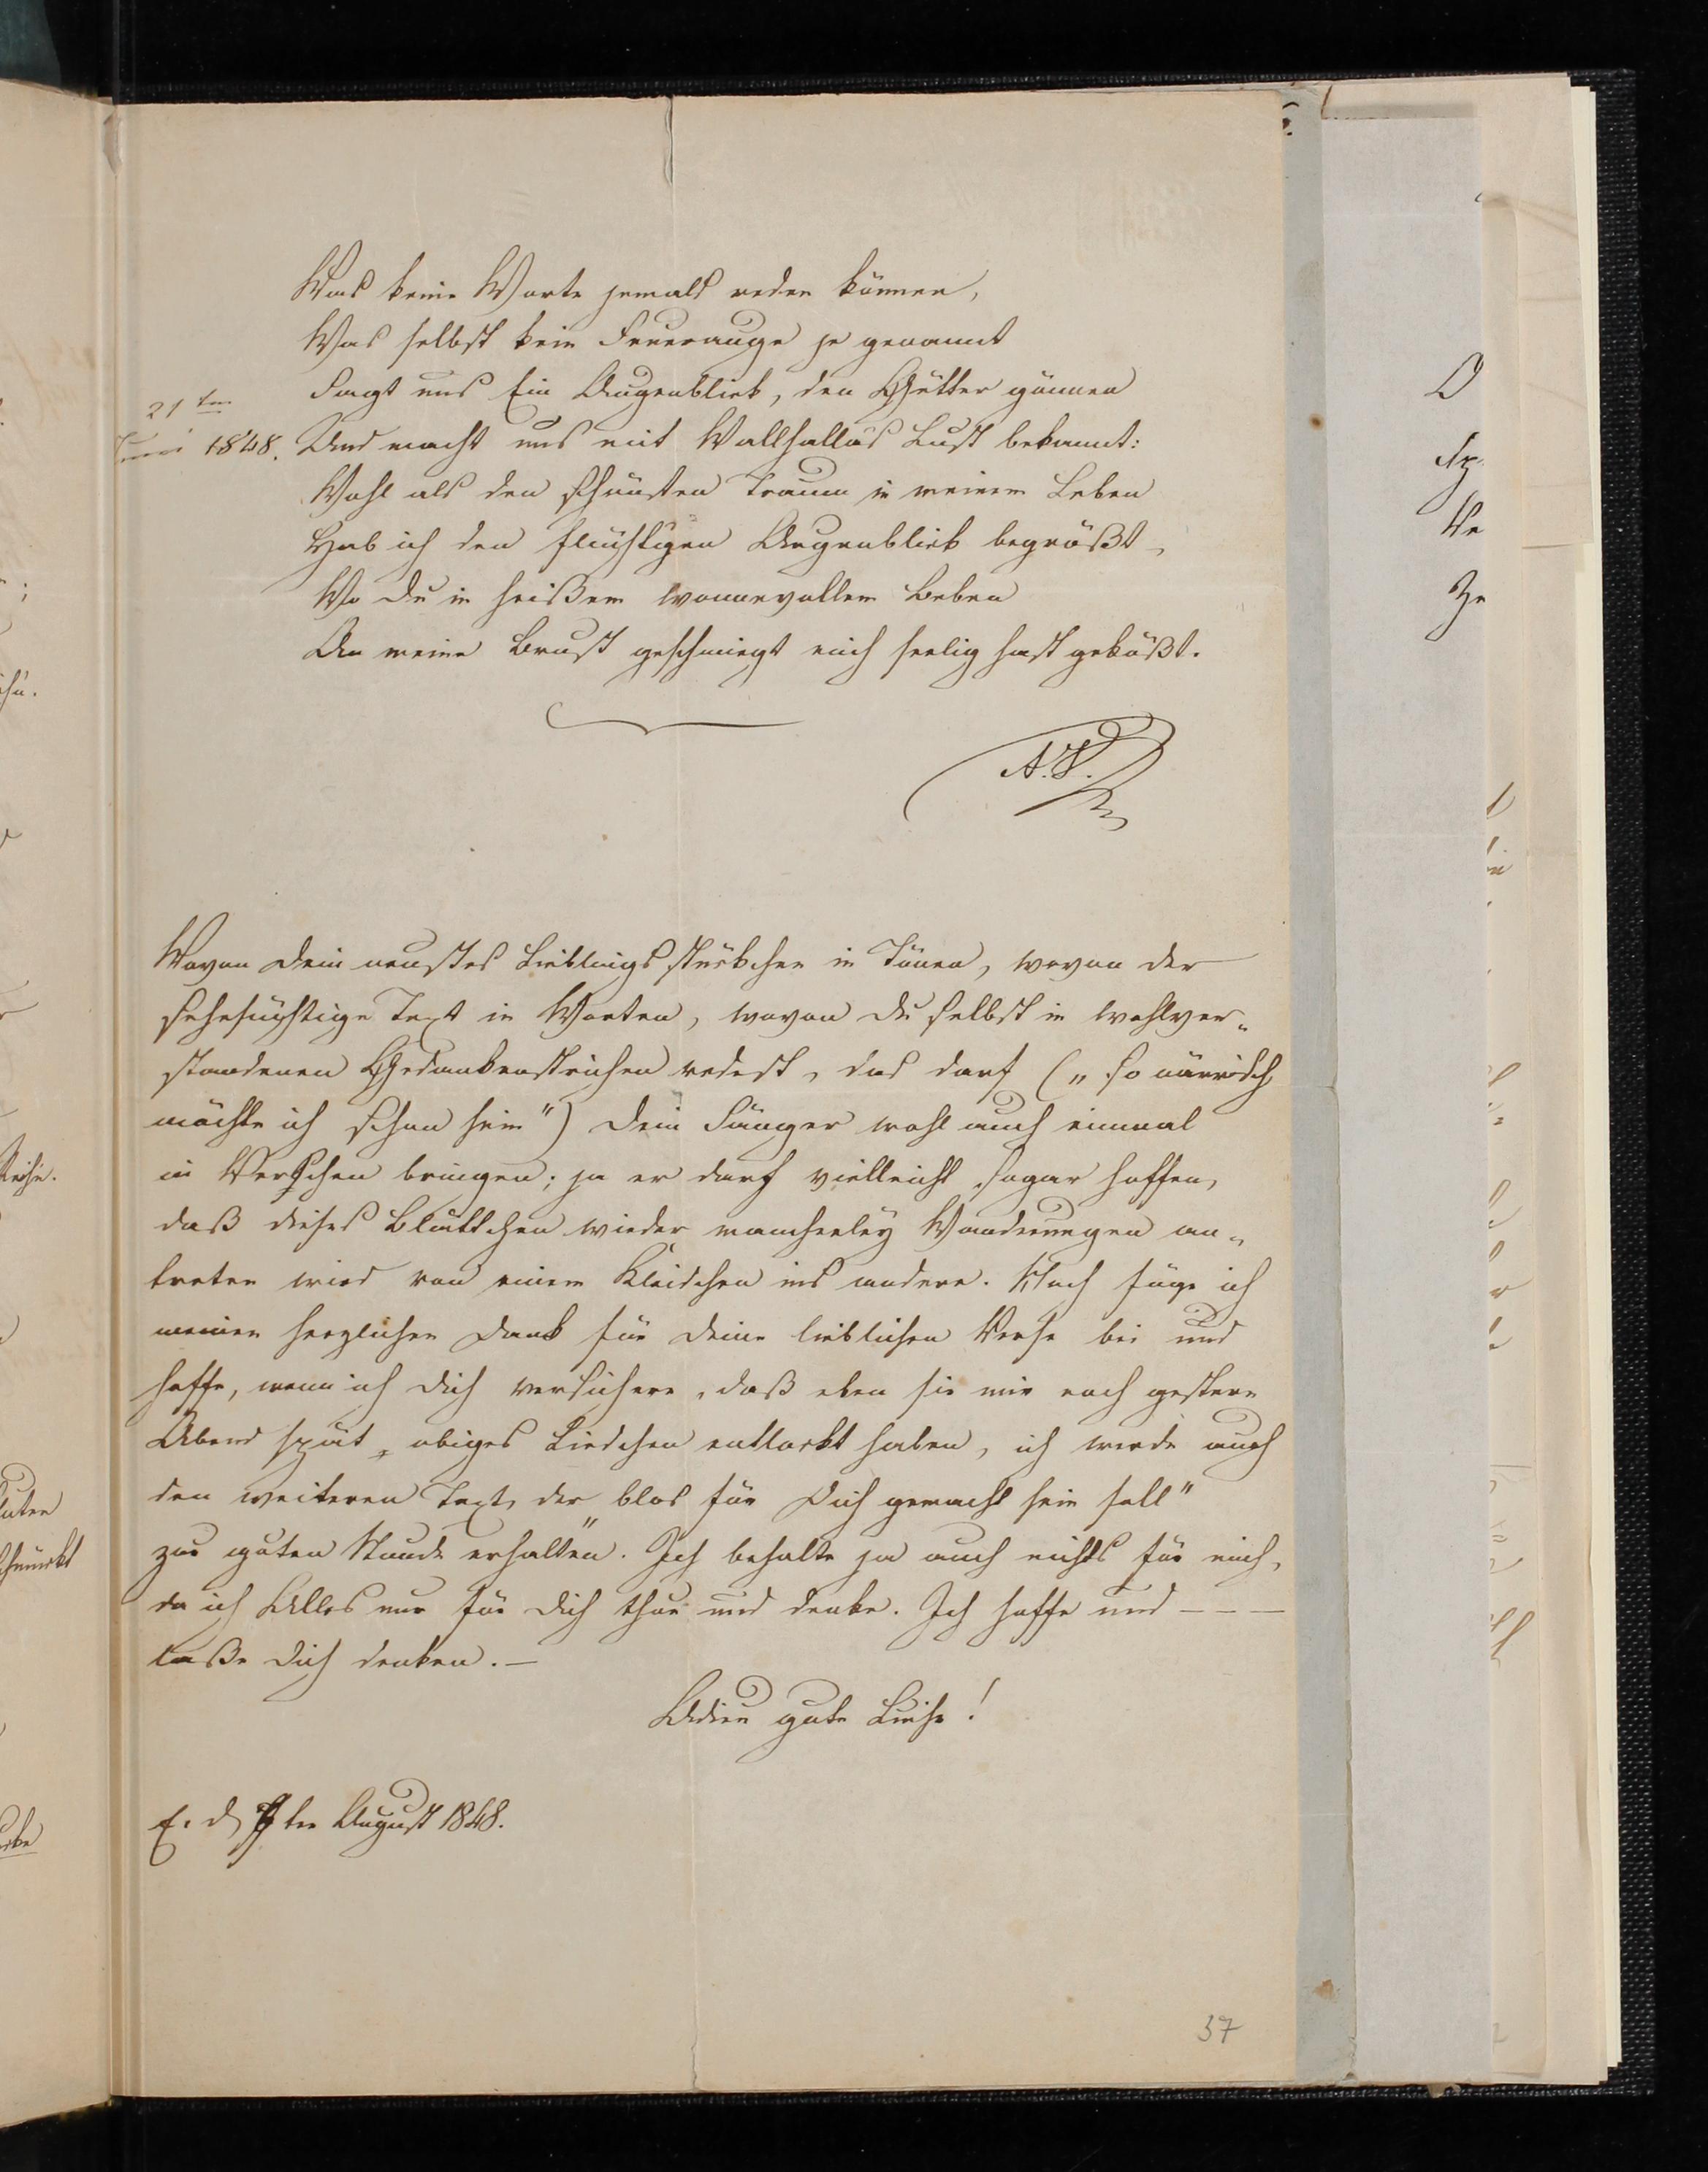 Was keine Worte jemals reden können,
Was selbst kein Feuerauge je genannt
Sagt uns Ein Augenblick, den Götter gönnen
21ten
Juni 1848.
Und macht uns mit Wallhalla's Lust bekannt:
Wohl als den schönsten Traum in meinem Leben
Hab ich den flüchtigen Augenblick begrüßt,
Wo Du in heißem wonnevollem Beben
An meine Brust geschmiegt mich seelig hast geküßt.
A.
Wovon Dein neustes Lieblingsstückchen in Tönen, wovon der
sehnsüchtige Text in Worten, wovon Du selbst in wohlver„
standenen Gedankenstrichen redest, das darf („so närrisch
möchte ich schon sein") Dein Sänger wohl auch einmal
in Verschen bringen; ja er darf vielleicht sogar hoffen,
daß dieses Blättchen wieder mancherley Wanderungen an„
treten wird von einem Kleidchen ins andere. Noch füge ich
meinen herzlichen Dank für Deine lieblichen Verse bei und
hoffe, wenn ich Dich versichere, daß eben sie mir noch gestern
Abend spät obiges Liedchen entlockt haben, ich werde auch
den weiteren Text, der blos für Dich gemacht sein soll"
zur guten Stunde erhalten. Ich behalte ja auch nichts für mich,
da ich Alles nur für Dich thue und denke. Ich hoffe und – – –
laße Dich denken. –
Adieu gute Luise!
E. d ten August 1848.
37